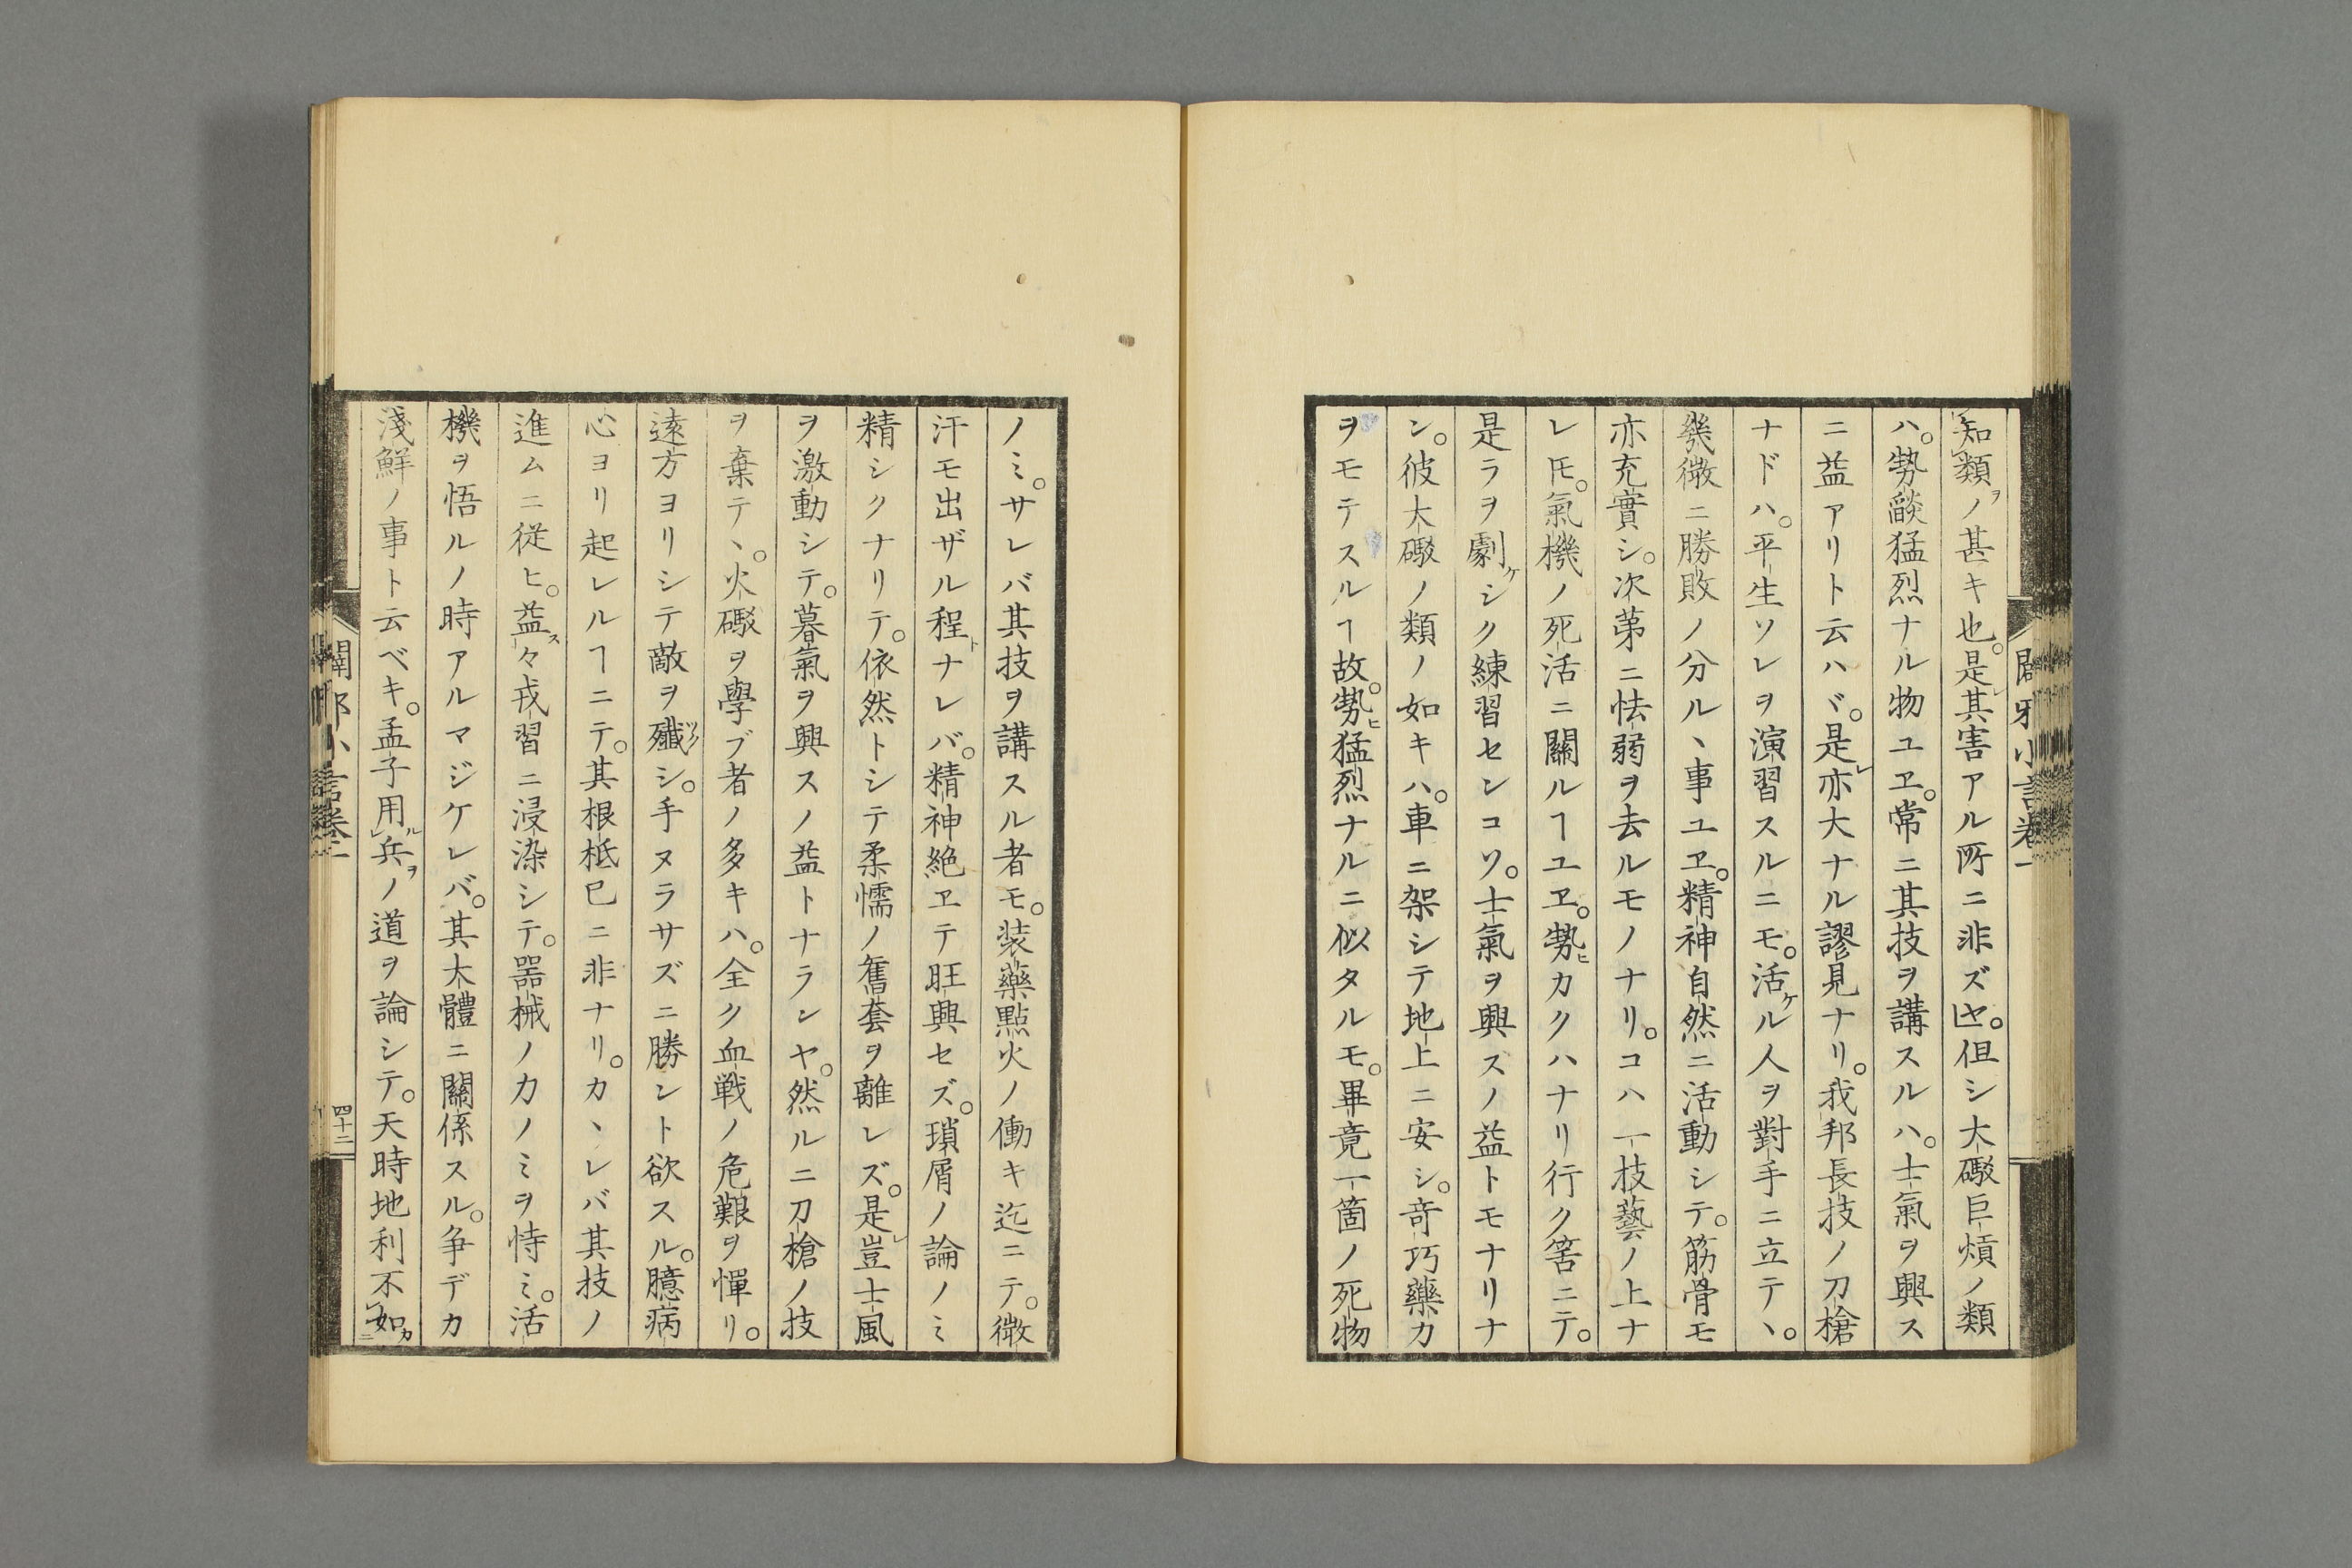 知類ヲノ甚キ也。是レ其害アル所ニ非ズヤ。但シ大礮巨熕ノ類
ハ。勢燄猛烈ナル物ユヱ。常ニ其技ヲ講スルハ。士氣ヲ興ス
ニ益アリト云ハヾ。是レ亦大ナル謬見ナリ。我邦長技ノ刀槍
ナドハ。平生ソレヲ演習スルニモ。活ケル人ヲ對手ニ立テヽ。
幾微ニ勝敗ノ分ルヽ事ユヱ。精神自然ニ活動シテ。筋骨モ
亦充實シ。次第ニ怯弱ヲ去ルモノナリ。コハ一技藝ノ上ナ
レ𪜈。氣機ノ死活ニ關ルヿユヱ。勢ヒカクハナリ行ク筈ニテ。
是ラヲ劇ケシク練習センコソ。士氣ヲ興スノ益トモナリナ
ン。彼大礮ノ類ノ如キハ。車ニ架シテ地上ニ安シ。奇巧藥力
ヲモテスルヿ故。勢ヒ猛烈ナルニ似タルモ。畢竟一箇ノ死物
ノミ。サレバ其技ヲ講スル者モ。装藥點火ノ働キ迄ニテ。微
汗モ出ザル程トナレバ。精神絶ヱテ旺興セズ。瑣屑ノ論ノミ
精シクナリテ。依然トシテ柔懦ノ舊套ヲ離レズ。是レ豈士風
ヲ激動シテ。暮氣ヲ興スノ益トナランヤ。然ルニ刀槍ノ技
ヲ棄テヽ。火礮ヲ學ブ者ノ多キハ。全ク血戦ノ危艱ヲ憚リ。
遠方ヨリシテ敵ヲ殱ツクシ。手ヌラサズニ勝ント欲スル。臆病
心ヨリ起レルヿニテ。其根柢已ニ非ナリ。カヽレバ其技ノ
進ムニ従ヒ。益ス々戎習ニ浸染シテ。器械ノ力ノミヲ恃ミ。活
機ヲ悟ルノ時アルマジケレバ。其大體ニ關係スル。争デカ
淺鮮ノ事ト云ベキ。孟子用ルレ兵ヲノ道ヲ論シテ。天時地利不レ如カニ
闢邪小言卷二
四十二